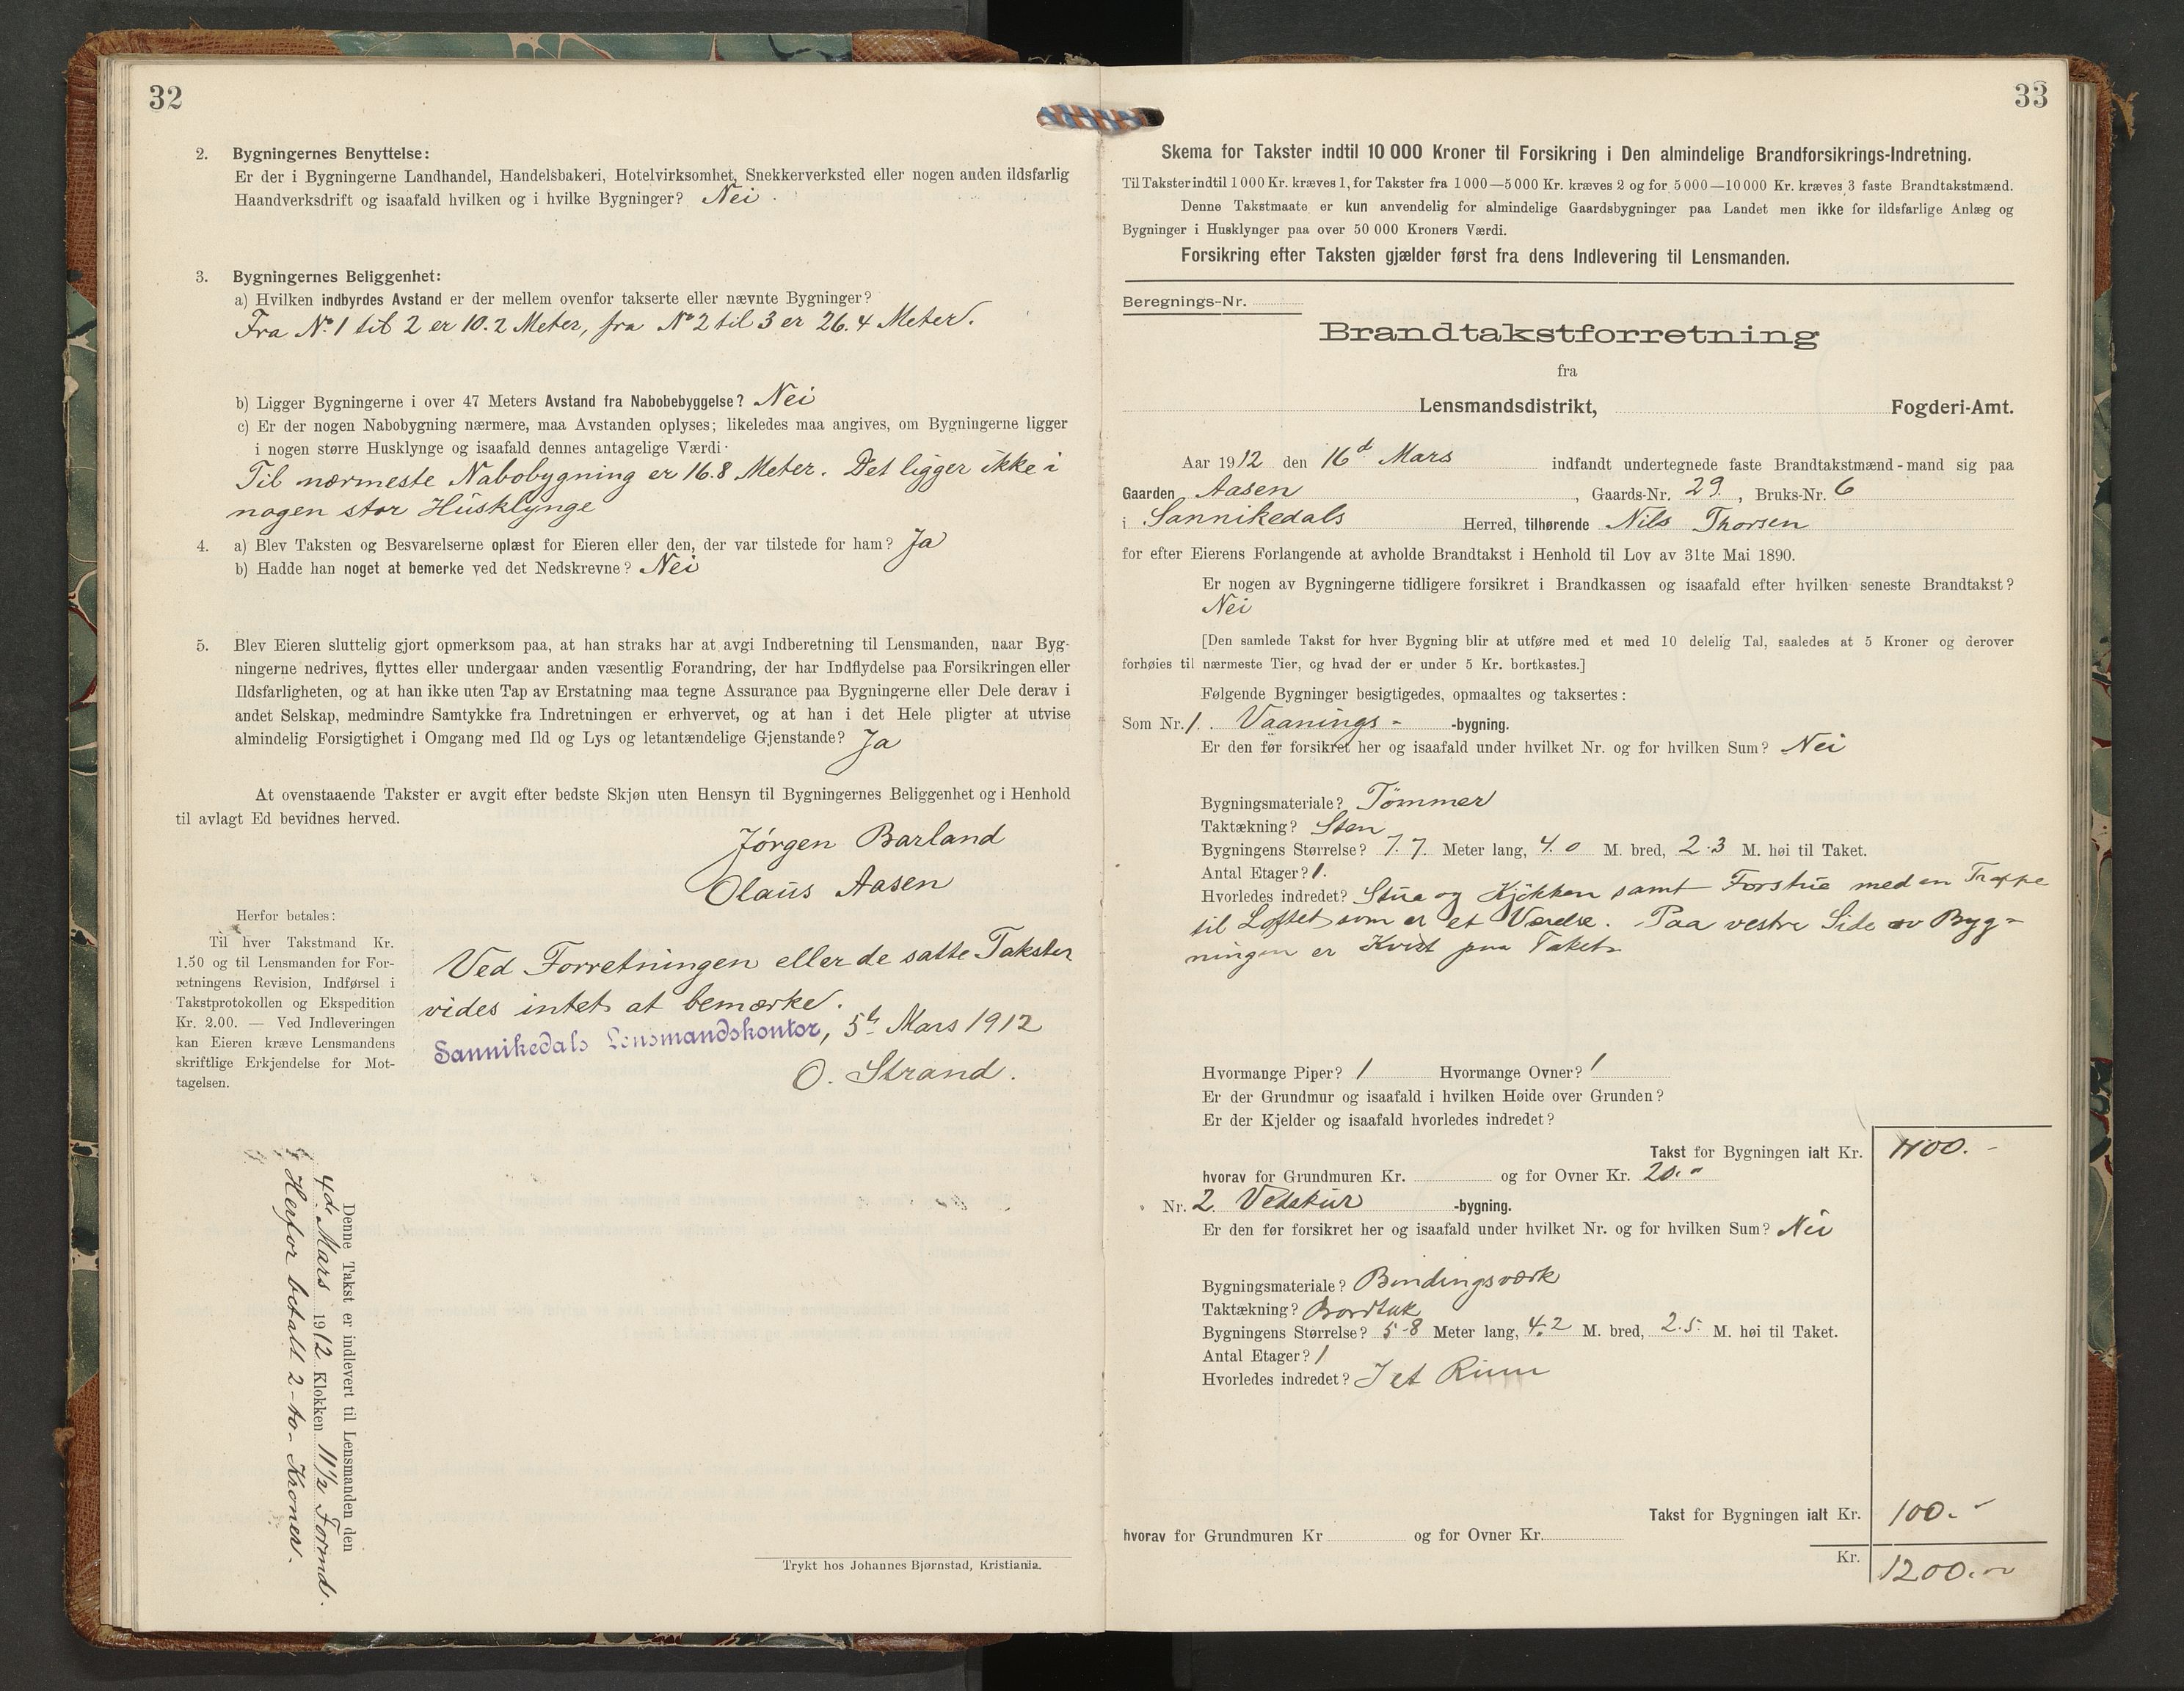 32
2. Bygningernes Benyttelse:
Er der i Bygningerne Landhandel, Handelsbakeri, Hotelvirksomhet, Snekkerverksted eller nogen anden ildsfarlig
Haandverksdrift og isaafald hvilken og i hvilke Bygninger? Nei
3. Bygningernes Beliggenhet:
a) Hvilken indbyrdes Avstand er der mellem ovenfor takserte eller nævnte Bygninger?
Fra No. 1 til 2 er 10.2 Meter, fra No 2 til 3 er 26.4 Meter.
b) Ligger Bygningerne i over 47 Meters Avstand fra Nabobebyggelse? Nei
c) Er der nogen Nabobygning nærmere, maa Avstanden oplyses; likeledes maa angives, om Bygningerne ligger
i nogen større Husklynge og isaafald dennes antagelige Værdi.
Til nærmeste Nabobygning er 16.8 Meter. Det ligger ikke i
nogen stor Husklynge
4. a) Blev Taksten og Besvarelserne oplæst for Eieren eller den, der var tilstede for ham? Ja
b) Hadde han noget at bemerke ved det Nedskrevne? Nei
5. Blev Eieren sluttelig gjort opmerksom paa, at han straks har at avgi Indberetning til Lensmanden, naar Byg-
ningerne nedrives, flyttes eller undergaar anden væsentlig Forandring, der har Indflydelse paa Forsikringen eller
Ildsfarligheten, og at han ikke uten Tap av Erstatning maa tegne Assurance paa Bygningerne eller Dele derav i
andet Selskap, medmindre Samtykke fra Indretningen er erhvervet, og at han i det Hele pligter at utvise
almindelig Forsigtighet i Omgang med Ild og Lys og letantændelige Gjenstande? Ja
At ovenstaaende Takster er avgit efter bedste Skjøn uten Hensyn til Bygningernes Beliggenhet og i Henhold
til avlagt Ed bevidnes herved.
Jørgen Barland
Olaus Aasen
Herfor betales:
Til hver Takstmand Kr.
1.50 og til Lensmanden for For-
retningens Revision, Indførsel i
Takstprotokollen og Ekspedition
Kr. 2.00. — Ved Indleveringen
kan Eieren kræve Lensmandens
skriftlige Erkjendelse for Mot-
tagelsen.
Ved Forretningen eller de satte Takster
vides intet at bemærke.
Sannikedals Lensmandskontor, 5th Mars 1912
O. Strand.
Denne Takst er indlevert til Lensmanden den
4de Mars 1912 Klokken 11 1/2 Formd.
Herfor betalt 2 - to - Kroner.
Trykt hos Johannes Bjørnstad, Kristiania.
33
Skema for Takster indtil 10 000 Kroner til Forsikring i Den almindelige Brandforsikrings-Indretning.
Til Takster indtil 1 000 Kr. kræves 1, for Takster fra 1 000—5 000 Kr. kræves 2 og for 5 000—10 000 Kr. kræves 3 faste Brandtakstmænd.
Denne Takstmaate er kun anvendelig for almindelige Gaardsbygninger paa Landet men ikke for ildsfarlige Anlæg og
Bygninger i Husklynger paa over 50 000 Kroners Værdi.
Forsikring efter Taksten gjælder først fra dens Indlevering til Lensmanden.
Beregnings-Nr.
Brandtakstforretning
fra
Lensmandsdistrikt, Fogderi-Amt.
Aar 1912 den 16d Mars indfandt undertegnede faste Brandtakstmænd-mand sig paa
Gaarden Aasen, Gaards-Nr. 29., Bruks-Nr. 6
i Sannikedals Herred, tilhørende Nils Thorsen
for efter Eierens Forlangende at avholde Brandtakst i Henhold til Lov av 31te Mai 1890.
Er nogen av Bygningerne tidligere forsikret i Brandkassen og isaafald efter hvilken seneste Brandtakst?
Nei
[Den samlede Takst for hver Bygning blir at utføre med et med 10 delelig Tal, saaledes at 5 Kroner og derover
forhøies til nærmeste Tier, og hvad der er under 5 Kr. bortkastes.]
Følgende Bygninger besigtigedes, opmaaltes og taksertes:
Som Nr. 1. Vaanings- -bygning.
Er den før forsikret her og isaafald under hvilket Nr. og for hvilken Sum? Nei
Bygningsmateriale? Tømmer
Taktækning? Sten
Bygningens Størrelse? 7.7. Meter lang, 4.0 M. bred, 2.3 M. høi til Taket.
Antal Etager? 1.
Hvorledes indredet? Stua og Kjøkken samt Forstue med en Trappe
til Loftet som er et Værelse. Paa vestre Side av Byg-
ningen er Kvist paa Taket
Hvormange Piper? 1 Hvormange Ovner? 1
Er der Grundmur og isaafald i hvilken Høide over Grunden?
Er der Kjelder og isaafald hvorledes indredet?
Takst for Bygningen ialt Kr. 1100.-
hvorav for Grundmuren Kr. og for Ovner Kr. 20.-
Nr. 2 Vedskur -bygning.
Er den før forsikret her og isaafald under hvilket Nr. og for hvilken Sum? Nei
Bygningsmateriale? Bindingsværk
Taktækning? Bordtak
Bygningens Størrelse? 5.8 Meter lang, 4.2 M. bred, 2.5 M. høi til Taket.
Antal Etager? 1
Hvorledes indredet? I et Rum
Takst for Bygningen ialt Kr. 100.-
hvorav for Grundmuren Kr og for Ovner Kr.
Kr. 1200.00